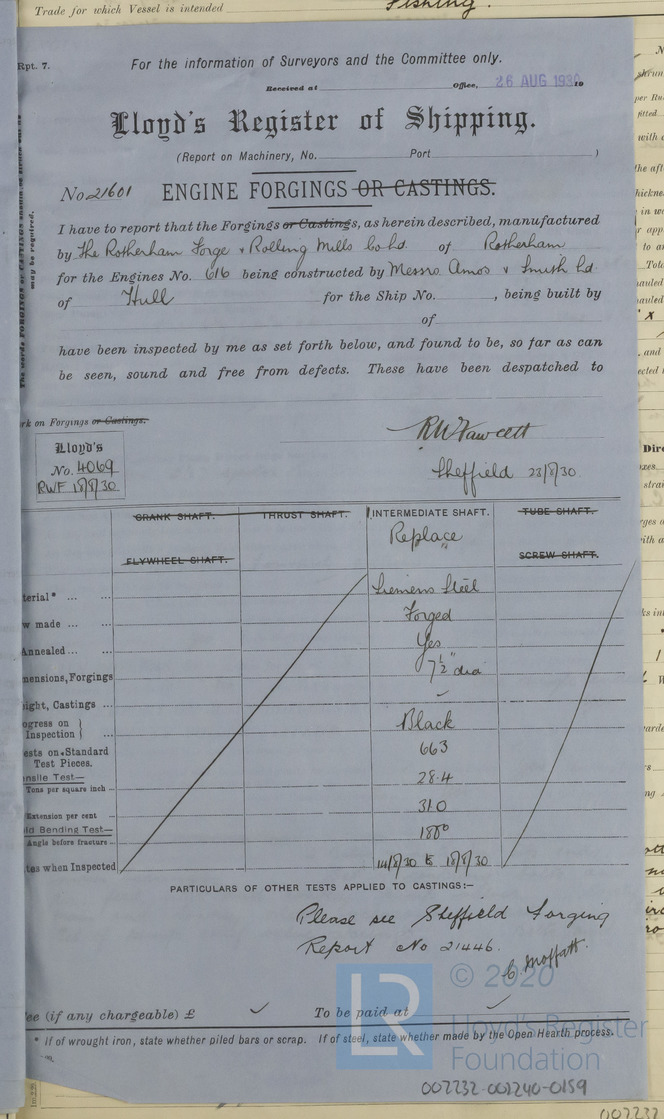 Trade for which Vessel is intended Fishing.
Rpt. 7.
For the information of Surveyors and the Committee only.
Received at Office, 26 AUG 1930 19
Lloyd's Register of Shipping.
(Report on Machinery, No. Port )
No 21601 ENGINE FORGINGS OR CASTINGS.
I have to report that the Forgings or Castings, as herein described, manufactured
by The Rotherham Forge & Rolling Mills Co Ld of Rotherham
for the Engines No. 616 being constructed by Messrs Amos & Smith Ld
of Hull for the Ship No. , being built by
of
have been inspected by me as set forth below, and found to be, so far as can
be seen, sound and free from defects. These have been despatched to
may be required.
rk on Forgings or Castings.
Lloyd's
No. 4069
RWF 18/8/30
RW Fawcett
Sheffield 23/8/30
CRANK SHAFT. THRUST SHAFT. INTERMEDIATE SHAFT. TUBE SHAFT.
Replace
FLYWHEEL SHAFT. SCREW SHAFT.
terial* Siemens Steel
w made Forged
Annealed Yes
mensions, Forgings 7½" dia
ight, Castings ✓
ogress on Inspection } Black
ests on Standard Test Pieces. 663
nsile Test—
Tons per square inch 28.4
Extension per cent 31.0
ld Bending Test—
Angle before fracture 180°
tes when Inspected 14/8/30 & 18/8/30
PARTICULARS OF OTHER TESTS APPLIED TO CASTINGS:—
Please see Sheffield Forging
Report No 21446.
C. Moffatt.
ee (if any chargeable) £ ✓ To be paid at ✓
* If of wrought iron, state whether piled bars or scrap. If of steel, state whether made by the Open Hearth process.
LR
© 2020
Lloyd's Register
Foundation
007232-007240-0159